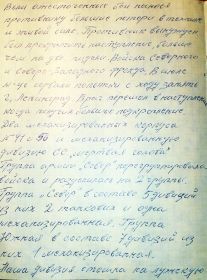 Вели ожесточенные бои нанося
противнику большие потери в технике
и живой силе. Противник вынужден
был прекратить наступление больше
чем на два недели. Войска Северного
и Северо-Западного фронта. В июле
м-це сорвали попытки с ходу захватить
г. Ленинград. Враг перешел в наступление
когда получил большое подкрепление
Два механизированных корпуса
41 и 56 и механизированную
дивизию СС "мертвая голова"
Группа армий "Север" перегруппировала
войска и разделилась на 2 группы.
Группа "Север" в составе 5 дивизий
из них 2 танковых и одна
механизированная. Группа
Южная в составе 7 дивизий из
них 1 механизированная.
Наша дивизия стояла на лужском